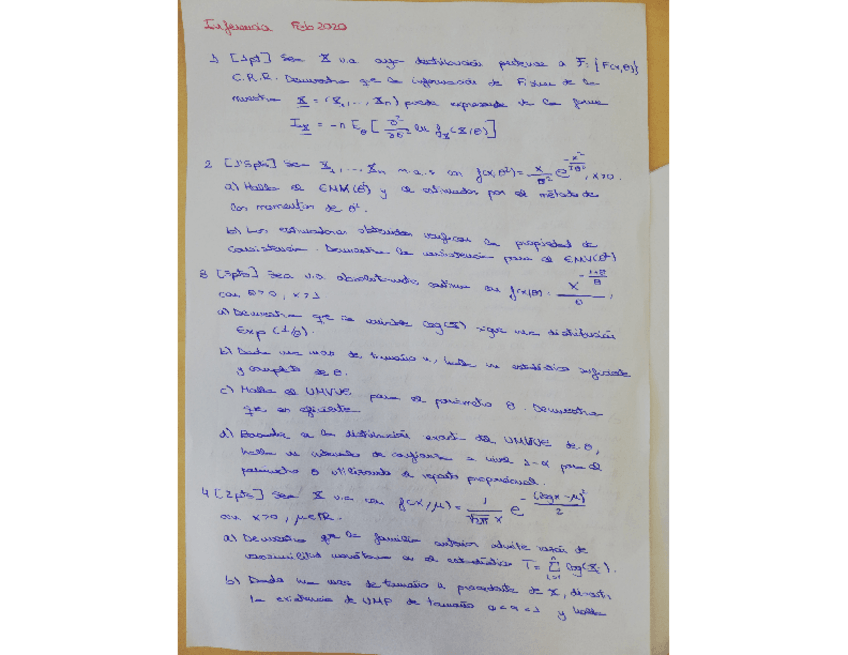 Inferencia Feb 2020
1) [1pt] Sea X v.a. cuya distribución pertenece a F={F(x,θ)}
C.R.R. Demuestra que la información de Fisher de la
muestra X = (X1,..., Xn) puede expresarse de la forma
I_X = -n E_θ [ ∂²/∂θ² ln f_X(X|θ) ]
2 [1'5pts] Sea X1,..., Xn m.a.s con f(x,θ²) = x/θ² e^(-x²/2θ²), x>0.
a) Halla el EMV(θ²) y el estimador por el método de
los momentos de θ².
b) Los estimadores obtenidos verifican la propiedad de
consistencia. Demuestra la consistencia para el EMV(θ²)
3 [3pts] Sea v.a. absolutamente continua con f(x|θ) = x^(-(1+θ)/θ) / θ,
con θ>0, x>1
a) Demuestra que la variable log(X) sigue una distribución
Exp(1/θ).
b) Dada una mas de tamaño n, halla un estadístico suficiente
y completo de θ.
c) Halla el UMVUE para el parámetro θ. Demuestra
que es eficiente
d) Basándo en la distribución exacta del UMVUE de θ,
halla un intervalo de confianza a nivel 1-α para el
parámetro θ utilizando el reparto proporcional.
4 [2pts] Sea X v.a con f(x|μ) = 1/(√2π x) e^(-(log x - μ)²/2)
con x>0, μ∈ℝ.
a) Demuestra que la familia anterior admite razón de
verosimilitud monótona en el estadístico T = Σ_{i=1}^n log(Xi).
b) Dada una mas de tamaño n procedente de X,
la existencia de UMP de tamaño 0<α<1 y halla